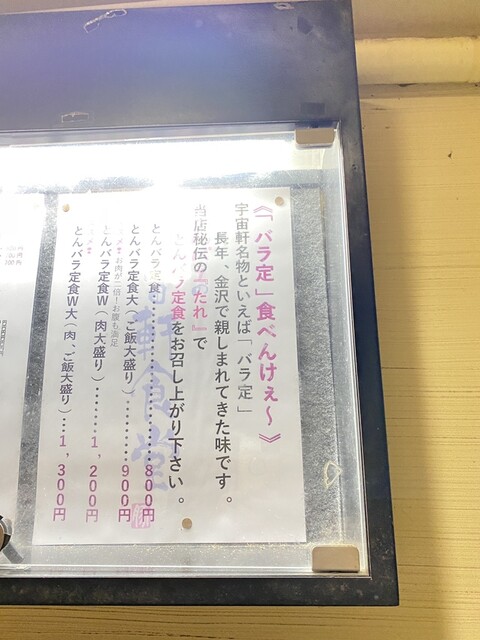 《「バラ定」食べんけぇ～》
宇宙軒名物といえば「バラ定」
長年、金沢で親しまれてきた味です。
当店秘伝の『たれ』で
とんバラ定食をお召し上がり下さい。
とんバラ定食………………800円
とんバラ定食大（ご飯大盛り）………900円
お肉が二倍！お腹も満足
とんバラ定食W（肉大盛り）………1,200円
とんバラ定食W大（肉、ご飯大盛り）…1,300円
食堂